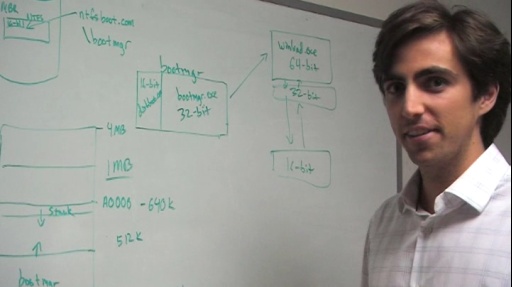 MBR NTFS
ntfsboot.com
\bootmgr
bootmgr
16-bit
bootmgr.exe
32-bit
winload.exe
64-bit
32-bit
16-bit
4MB
1MB
A0000 - 640k
Stack
512k
bootmgr